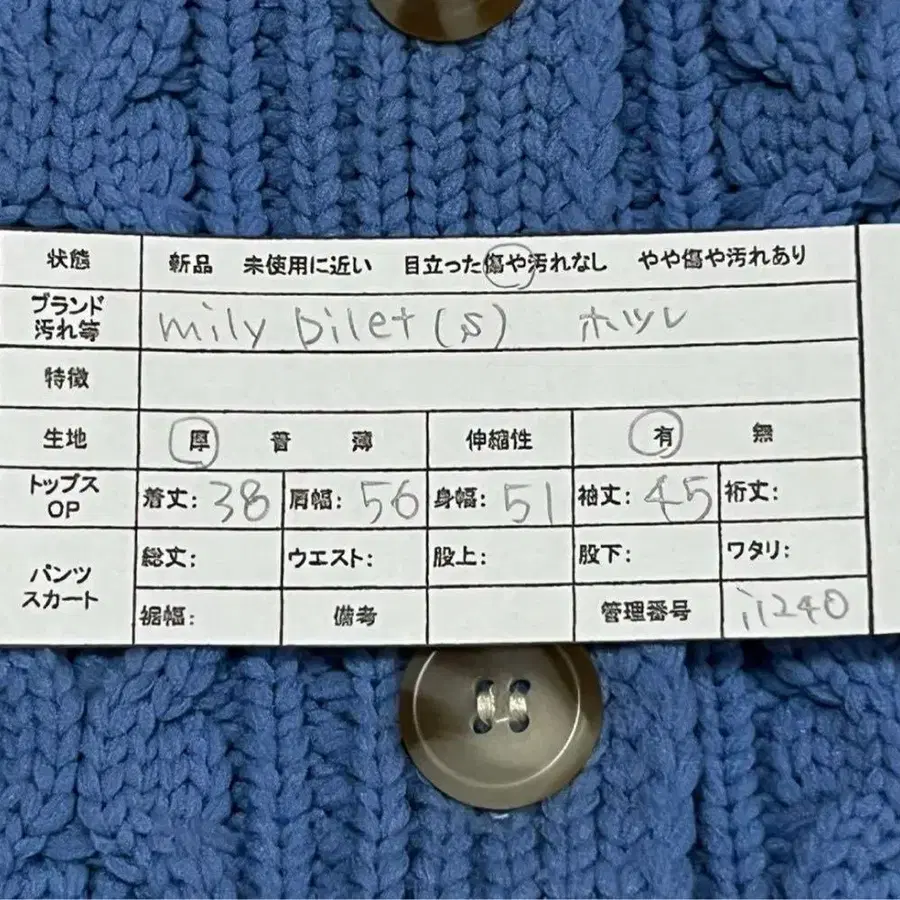 状態 新品 未使用に近い 目立った傷や汚れなし やや傷や汚れあり
ブランド 汚れ等 mily bilet(s) ホツレ
特徴
生地 厚 普 薄 伸縮性 有 無
トップス OP 着丈: 38 肩幅: 56 身幅: 51 袖丈: 45 裄丈:
パンツ スカート 総丈: ウエスト: 股上: 股下: ワタリ:
裾幅: 備考 管理番号 i1240